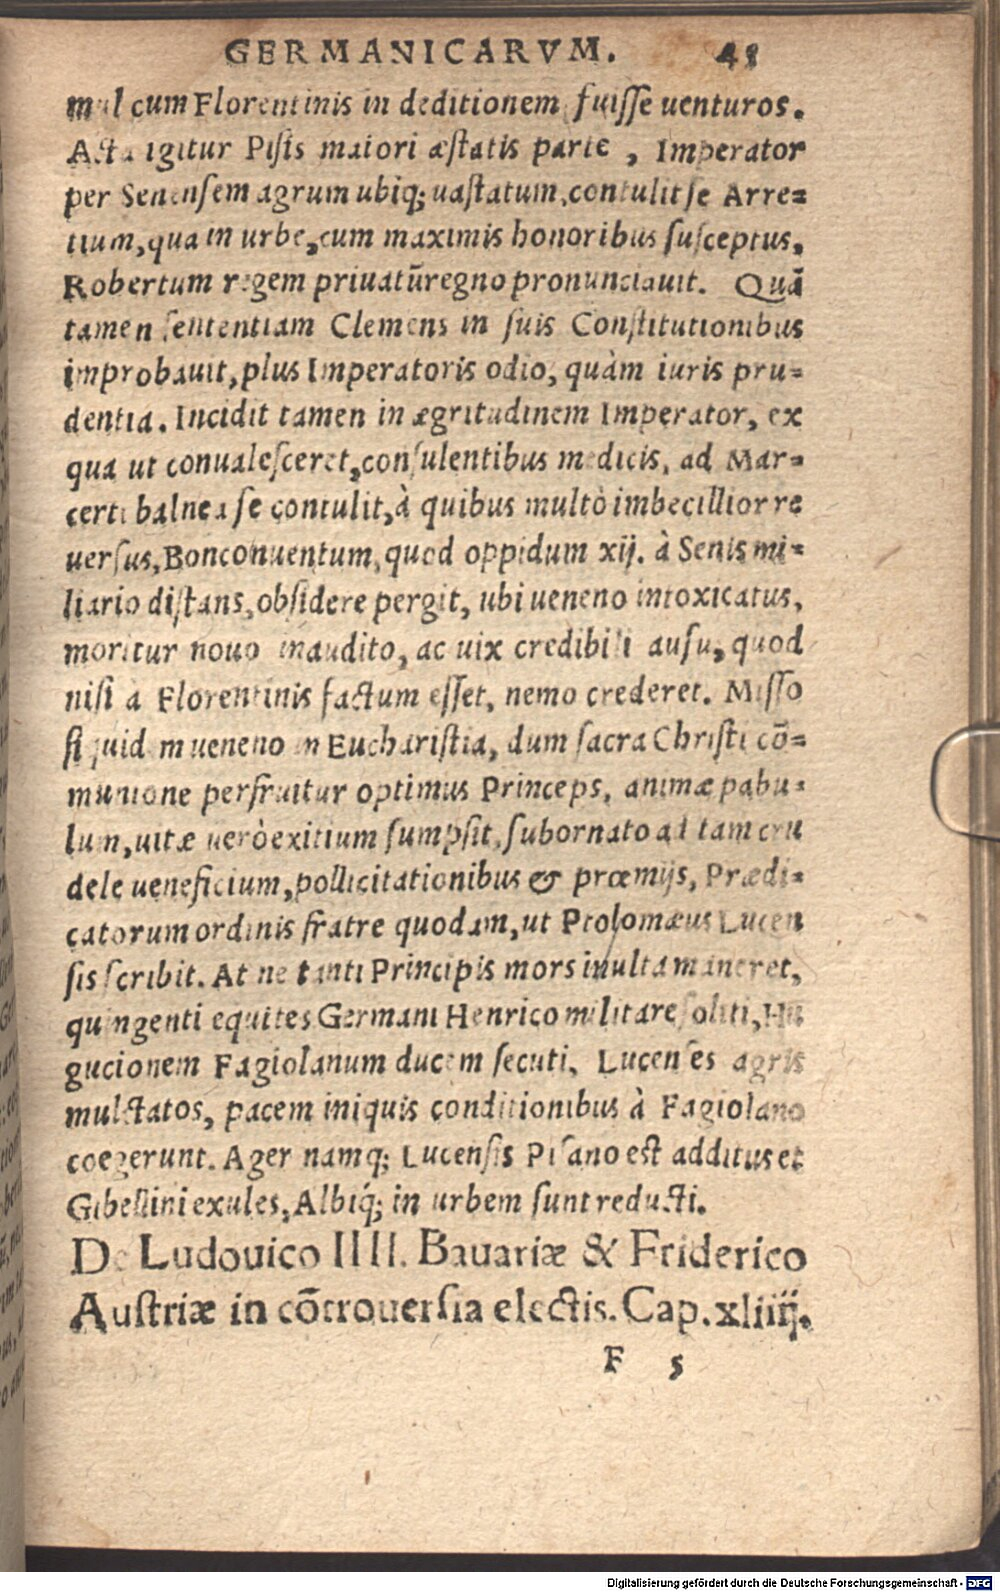 GERMANICARVM. 45
mul cum Florentinis in deditionem fuisse uenturos.
Acta igitur Pisis maiori æstatis parte, Imperator
per Senensem agrum ubiq; uastatum, contulit se Arre=
tium, qua in urbe, cum maximis honoribus susceptus,
Robertum regem priuatũ regno pronunciauit. Quã
tamen sententiam Clemens in suis Constitutionibus
improbauit, plus Imperatoris odio, quàm iuris pru=
dentia. Incidit tamen in ægritudinem Imperator, ex
qua ut conualesceret, consulentibus medicis, ad Mar=
certi balnea se contulit, à quibus multò imbecillior re
uersus, Bonconuentum, quod oppidum xij. à Senis mi=
liario distans, obsidere pergit, ubi ueneno intoxicatus,
moritur nouo inaudito, ac uix credibili ausu, quod
nisi à Florentinis factum esset, nemo crederet. Misso
siquidem ueneno in Eucharistia, dum sacra Christi cõ=
munione perfruitur optimus Princeps, animæ pabu=
lum, uitæ uerò exitium sumpsit, subornato ad tam cru
dele ueneficium, pollicitationibus & præmijs, Prædi=
catorum ordinis fratre quodam, ut Ptolomæus Lucen
sis scribit. At ne tanti Principis mors inulta maneret,
quingenti equites Germani Henrico militare soliti, Hu
gucionem Fagiolanum ducem secuti, Lucenses agris
mulctatos, pacem iniquis conditionibus à Fagiolano
coegerunt. Ager namq; Lucensis Pisano est additus et
Gibellini exules, Albiq́; in urbem sunt reducti.
De Ludouico IIII. Bauariæ & Friderico
Austriæ in cõtrouersia electis. Cap. xliiij.
F 5
Digitalisierung gefördert durch die Deutsche Forschungsgemeinschaft - DFG